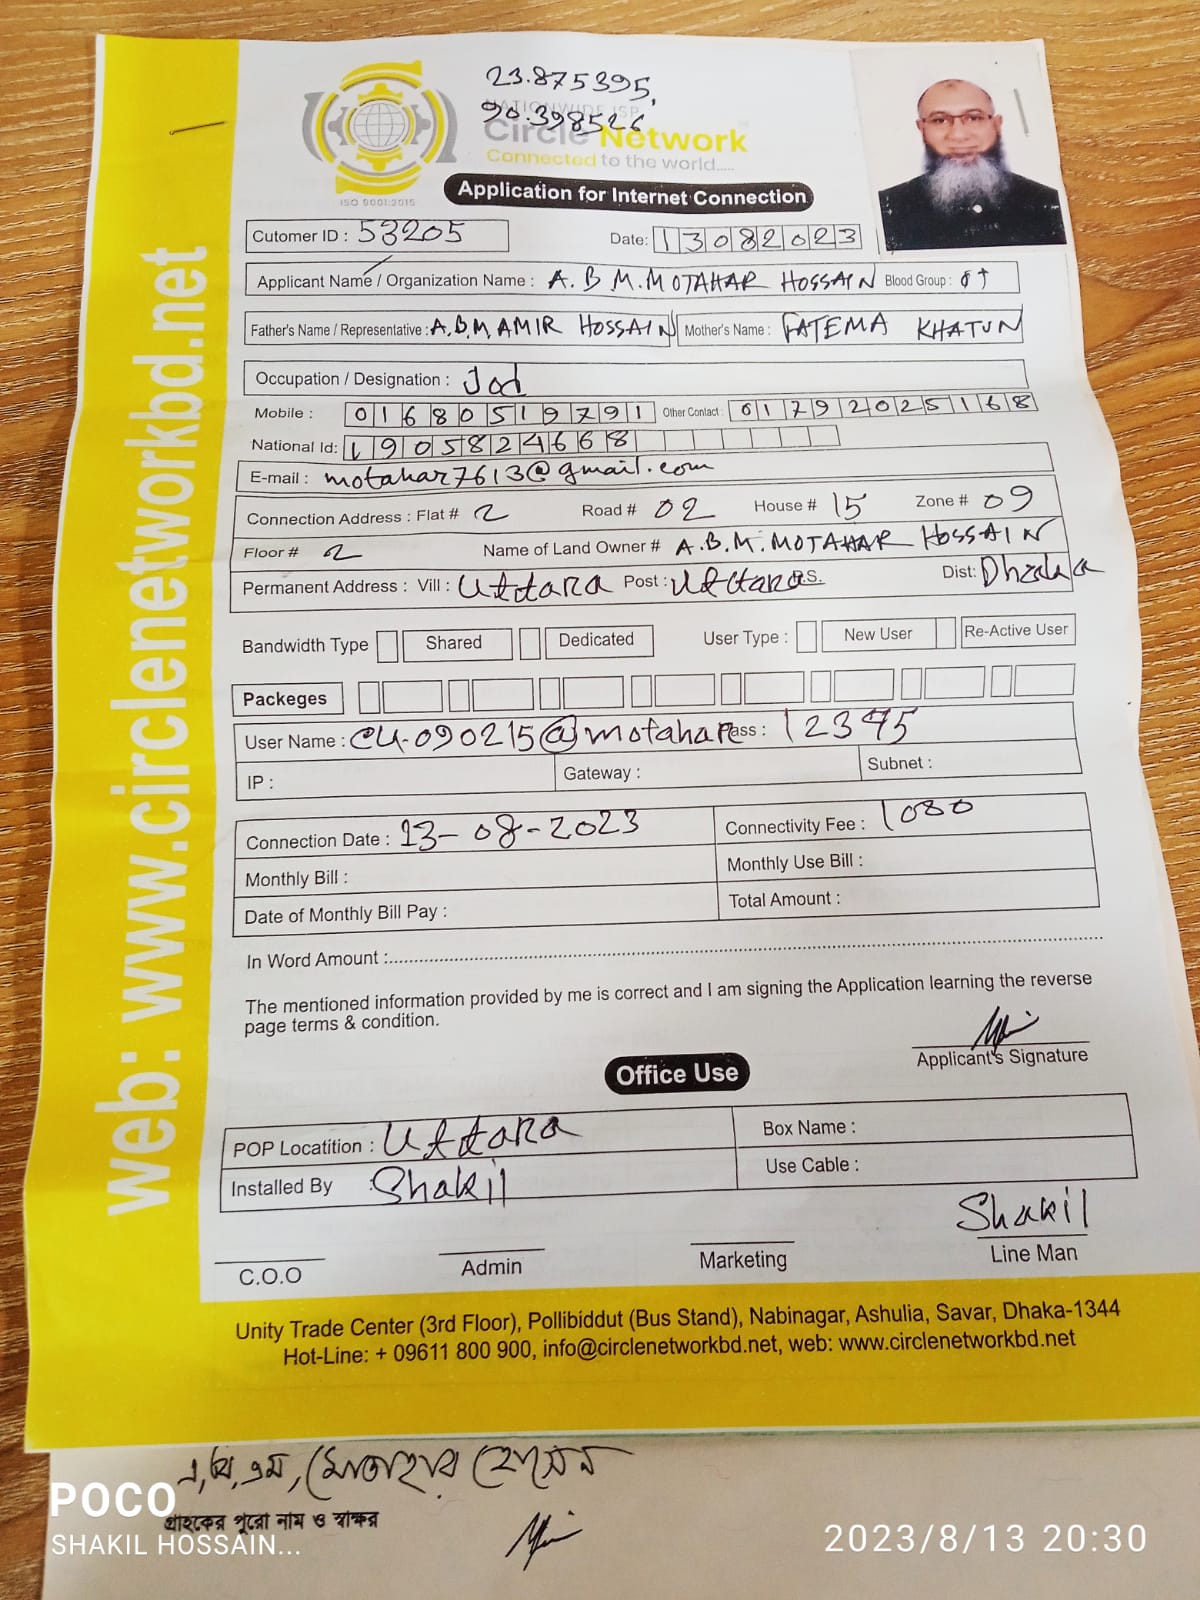 23.875395,
90.398526
NATIONWIDE ISP
Circle Network
Connected to the world.....
ISO 9001:2015
Application for Internet Connection
Cutomer ID : 53205
Date: 13082023
Applicant Name / Organization Name : A. B M. MOTAHAR HOSSAIN Blood Group :
Father's Name / Representative : A.B.M AMIR HOSSAIN Mother's Name : FATEMA KHATUN
Occupation / Designation :
Mobile : 01680519791 Other Contact : 01792025168
National Id: 1905824668
E-mail : motahar7613@gmail.com
Connection Address : Flat # 2 Road # 02 House # 15 Zone # 09
Floor # 2 Name of Land Owner # A.B.M. MOTAHAR HOSSAIN
Permanent Address : Vill : Uttara Post : Uttara P.S. Dist: Dhaka
Bandwidth Type Shared Dedicated User Type : New User Re-Active User
Packeges
User Name : CU-090215@motahar Pass : 12345
IP : Gateway : Subnet :
Connection Date : 13-08-2023 Connectivity Fee : 1080
Monthly Bill : Monthly Use Bill :
Date of Monthly Bill Pay : Total Amount :
In Word Amount :
The mentioned information provided by me is correct and I am signing the Application learning the reverse
page terms & condition.
Applicant's Signature
Office Use
POP Locatition : Uttara Box Name :
Installed By : Shakil Use Cable :
Shakil
C.O.O Admin Marketing Line Man
Unity Trade Center (3rd Floor), Pollibiddut (Bus Stand), Nabinagar, Ashulia, Savar, Dhaka-1344
Hot-Line: + 09611 800 900, info@circlenetworkbd.net, web: www.circlenetworkbd.net
web: www.circlenetworkbd.net
এ, বি, এম, মোতাহার হোসেন
গ্রাহকের পুরো নাম ও স্বাক্ষর
POCO
SHAKIL HOSSAIN...
2023/8/13 20:30